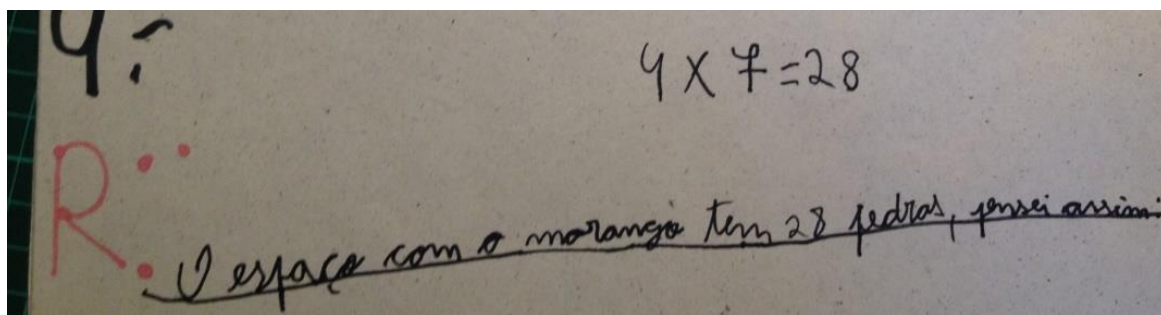 4:
4 x 7 = 28
R:
O espaço com o morango tem 28 pedras, pensei assim: